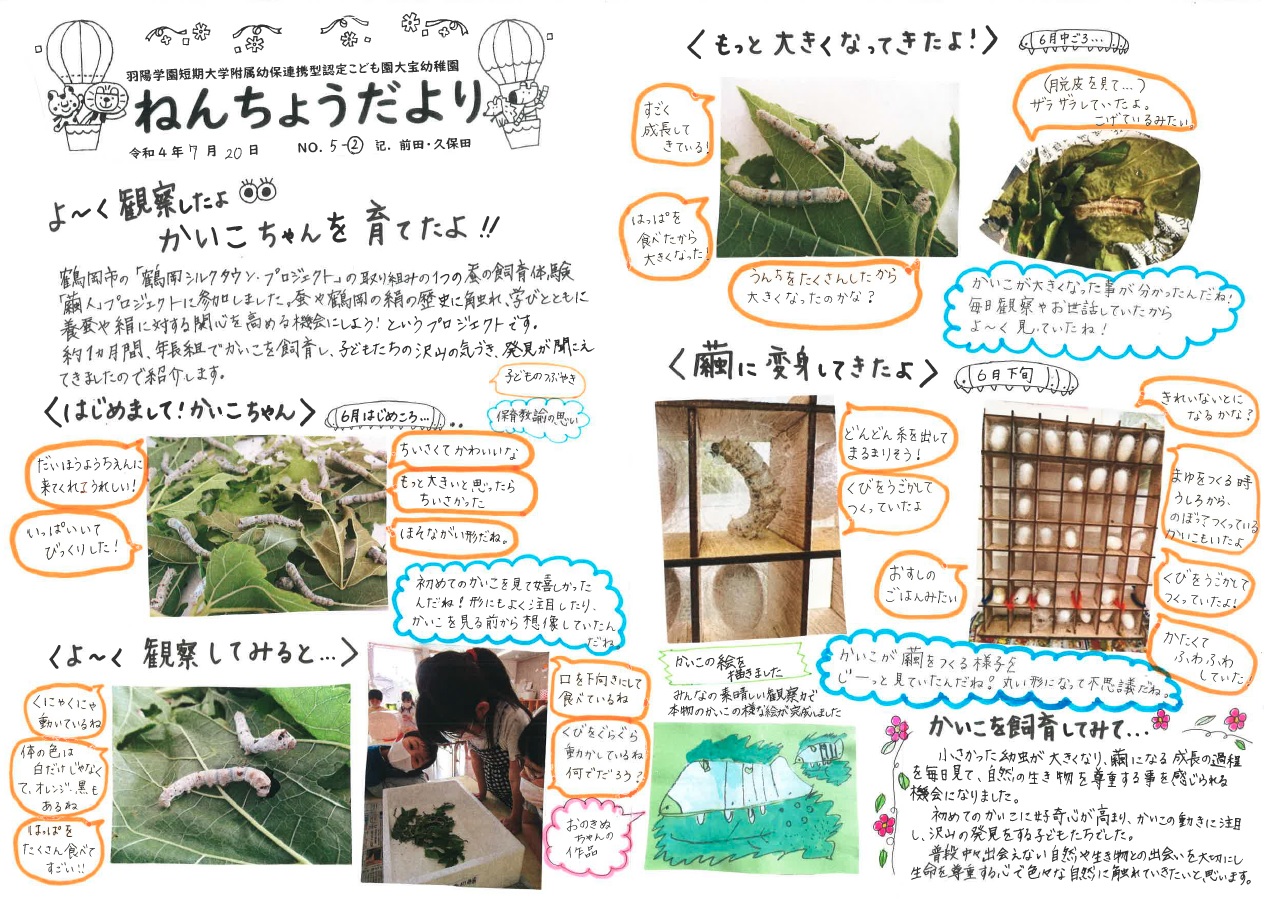 羽陽学園短期大学附属幼保連携型認定こども園大宝幼稚園
ねんちょうだより
令和4年7月20日 NO.5-② 記.前田・久保田
よ〜く観察したよ
かいこちゃんを育てたよ!!
鶴岡市の「鶴岡シルクタウン・プロジェクト」の取り組みの1つの蚕の飼育体験
「繭人」プロジェクトに参加しました。蚕や鶴岡の絹の歴史に触れ、学びとともに
養蚕や絹に対する関心を高める機会にしよう!というプロジェクトです。
約1カ月間、年長組でかいこを飼育し、子どもたちの沢山の気づき、発見が聞こえ
てきましたので紹介します。
子どものつぶやき
保育教諭の思い
〈はじめまして!かいこちゃん〉
6月はじめころ…
だいほうようちえんに
来てくれてうれしい!
いっぱいいて
びっくりした!
ちいさくてかわいいな
もっと大きいと思ったら
ちいさかった
ほそながい形だね。
初めてのかいこを見て嬉しかった
んだね!形にもよく注目したり、
かいこを見る前から想像していたん
だね。
〈よ〜く観察してみると…〉
くにゃくにゃ
動いているね
体の色は
白だけじゃなく
て、オレンジ、黒も
あるね
はっぱを
たくさん食べて
すごい!!
口を下向きにして
食べているね
くびをぐらぐら
動かしているね
何でだろう?
おのきぬ
ちゃんの
作品
〈もっと大きくなってきたよ!〉
6月中ごろ…
すごく
成長して
きている!
はっぱを
食べたから
大きくなった!
うんちをたくさんしたから
大きくなったのかな?
(脱皮を見て…)
ザラザラしていたよ。
こげているみたい。
かいこが大きくなった事が分かったんだね!
毎日観察やお世話していたから
よ〜く見ていたね!
〈繭に変身してきたよ〉
6月下旬
どんどん糸を出して
まるまりそう!
くびをうごかして
つくっていたよ
おすしの
ごはんみたい
きれいないとに
なるかな?
まゆをつくる時
うしろから、
のぼってつくっている
かいこもいたよ
くびをうごかして
つくっていたよ!
かたくて
ふわふわ
していた!
かいこが繭をつくる様子を
じーっと見ていたんだね!丸い形になって不思議だね。
かいこの絵を
描きました
みんなの素晴しい観察力で
本物のかいこの様な絵が完成しました
かいこを飼育してみて…
小さかった幼虫が大きくなり、繭になる成長の過程
を毎日見て、自然の生き物を尊重する事を感じられる
機会になりました。
初めてのかいこに好奇心が高まり、かいこの動きに注目
し、沢山の発見をする子どもたちでした。
普段中々出会えない自然や生き物との出会いを大切にし
生命を尊重する心で色々な自然に触れていきたいと思います。